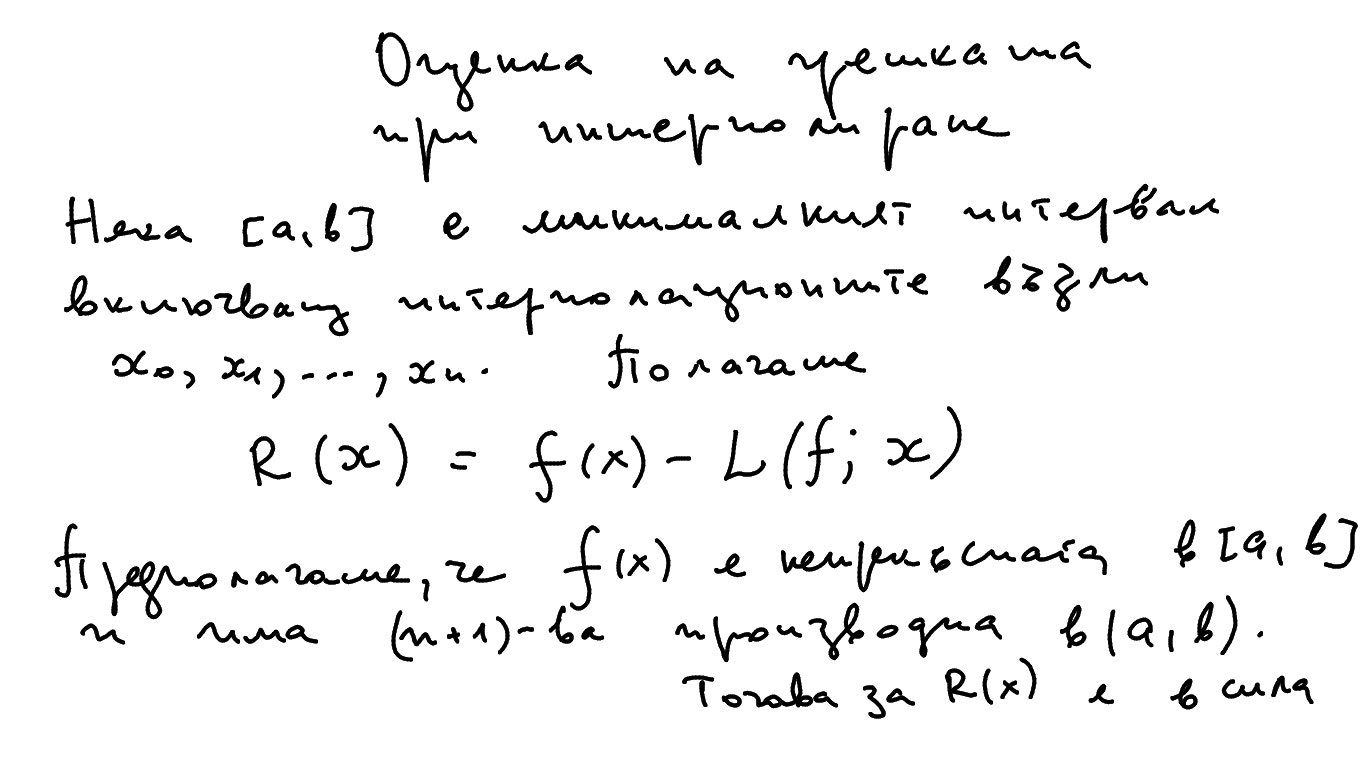 Оценка на грешката
при интерполиране
Нека [a,b] е минималният интервал
включващ интерполационните възли
x₀, x₁, ..., xₙ. Полагаме
R(x) = f(x) - L(f; x)
Предполагаме, че f(x) е непрекъсната в [a, b]
и има (n+1)-ва производна в (a, b).
Тогава за R(x) е в сила